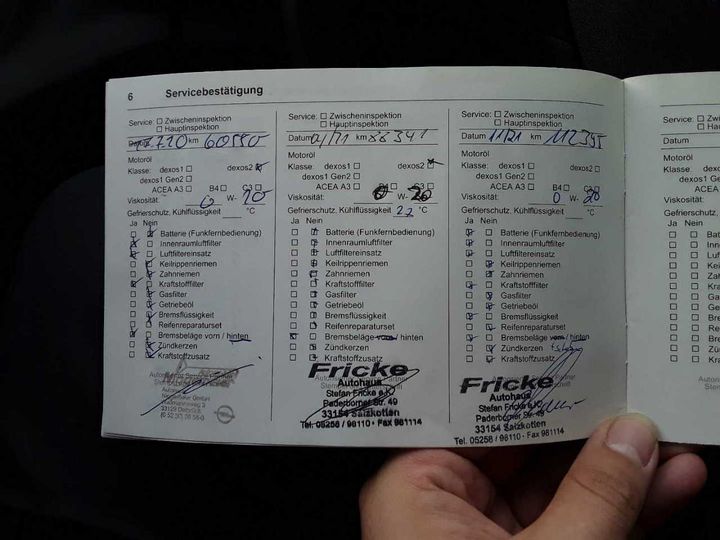 6 Servicebestätigung
Service: ☐ Zwischeninspektion
☐ Hauptinspektion
7.20 km 60550
Motoröl
Klasse: dexos1 ☐ dexos2 ☒
dexos1 Gen2 ☐
ACEA A3 ☐ B4 ☐ C3 ☐
Viskosität: 0 W- 20
Gefrierschutz, Kühlflüssigkeit °C
Ja Nein
Batterie (Funkfernbedienung)
Innenraumluftfilter
Luftfiltereinsatz
Keilrippenriemen
Zahnriemen
Kraftstofffilter
Gasfilter
Getriebeöl
Bremsflüssigkeit
Reifenreparaturset
Bremsbeläge vorn / hinten
Zündkerzen
Kraftstoffzusatz
33129 Delbrück
Service: ☐ Zwischeninspektion
☐ Hauptinspektion
Datum 04/21 km 88341
Motoröl
Klasse: dexos1 ☐ dexos2 ☒
dexos1 Gen2 ☐
ACEA A3 ☐ B4 ☐ C3 ☐
Viskosität: 0 W- 20
Gefrierschutz, Kühlflüssigkeit 22 °C
Ja Nein
Batterie (Funkfernbedienung)
Innenraumluftfilter
Luftfiltereinsatz
Keilrippenriemen
Zahnriemen
Kraftstofffilter
Gasfilter
Getriebeöl
Bremsflüssigkeit
Reifenreparaturset
Bremsbeläge vorn / hinten
Zündkerzen
Kraftstoffzusatz
Fricke
Autohaus
Stefan Fricke e.K.
Paderborner Str. 49
33154 Salzkotten
Tel. 05258 / 98110 · Fax 981114
Service: ☐ Zwischeninspektion
☐ Hauptinspektion
Datum 11/21 km 112395
Motoröl
Klasse: dexos1 ☐ dexos2 ☐
dexos1 Gen2 ☐
ACEA A3 ☐ B4 ☐ C3 ☐
Viskosität: 0 W- 20
Gefrierschutz, Kühlflüssigkeit °C
Ja Nein
Batterie (Funkfernbedienung)
Innenraumluftfilter
Luftfiltereinsatz
Keilrippenriemen
Zahnriemen
Kraftstofffilter
Gasfilter
Getriebeöl
Bremsflüssigkeit
Reifenreparaturset
Bremsbeläge vorn / hinten
Zündkerzen
Kraftstoffzusatz
Fricke
Autohaus
Stefan Fricke e.K.
Paderborner Str. 49
33154 Salzkotten
Tel. 05258 / 98110 · Fax 981114
Service:
Datum
Motoröl
Klasse:
Viskosität:
Gefrierschutz
Ja Nein
Ba
In
Lu
Ke
Za
Kr
Ga
Ge
Br
Re
Br
Zü
Kr